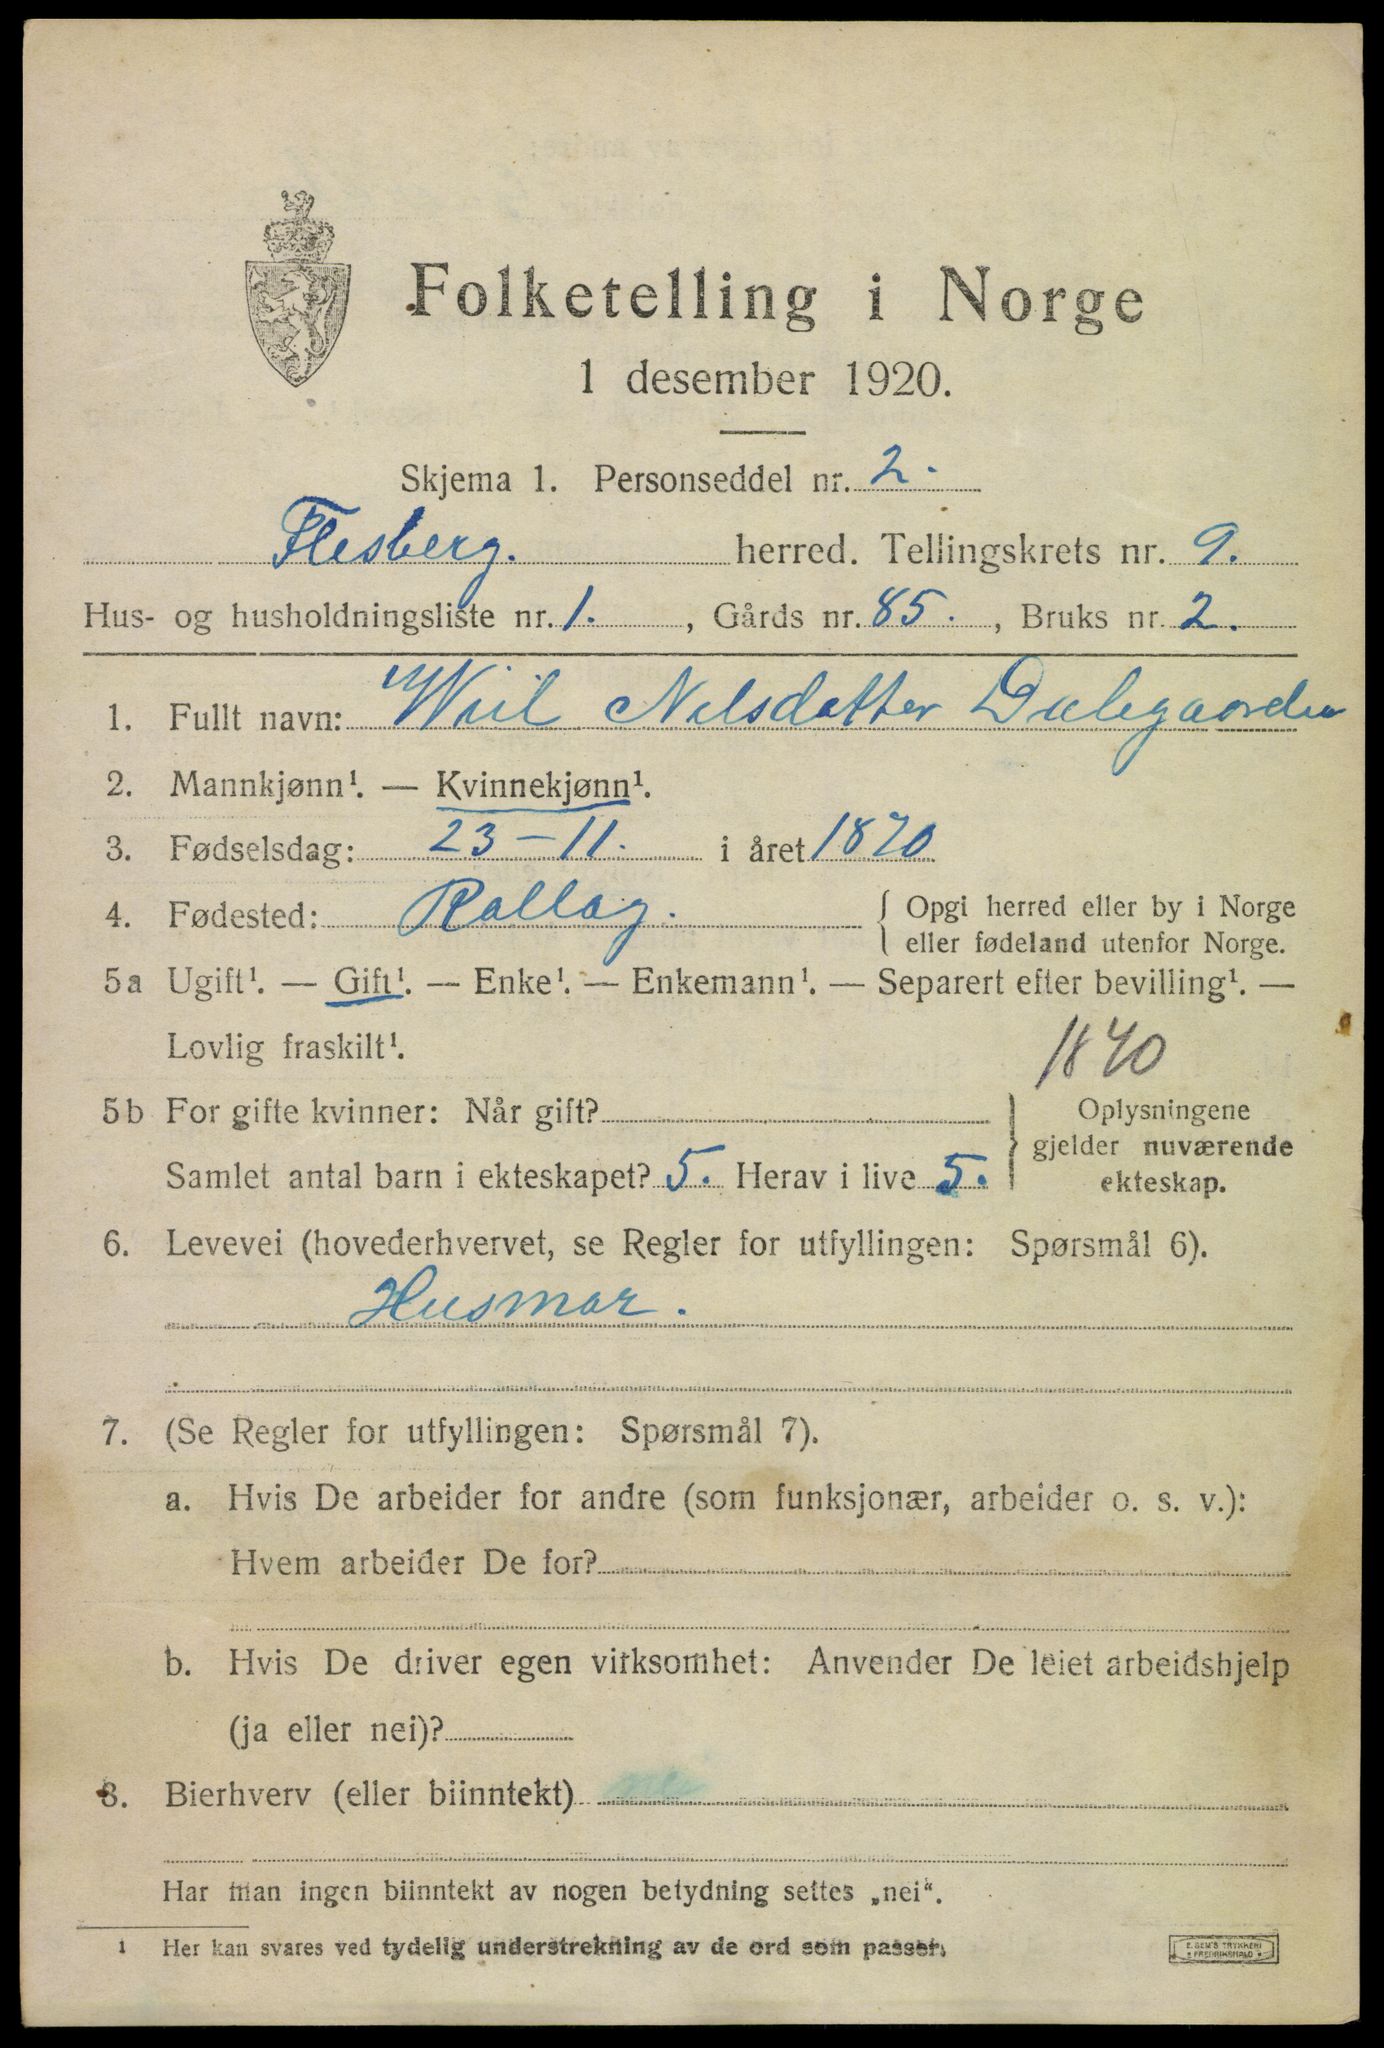 Folketelling i Norge
1 desember 1920.
Skjema 1. Personseddel nr. 2.
Flesberg. herred. Tellingskrets nr. 9.
Hus- og husholdningsliste nr. 1. , Gårds nr. 85. , Bruks nr. 2.
1. Fullt navn: Wiil Nilsdatter Dalegaarden
2. Mannkjønn¹. — Kvinnekjønn¹.
3. Fødselsdag: 23-11. i året 1870
4. Fødested: Rollag. { Opgi herred eller by i Norge
eller fødeland utenfor Norge.
5a Ugift¹. — Gift¹. — Enke¹. — Enkemann¹. — Separert efter bevilling¹. —
Lovlig fraskilt¹.
1870
5b For gifte kvinner: Når gift? } Oplysningene
gjelder nuværende
Samlet antal barn i ekteskapet? 5. Herav i live 5. ekteskap.
6. Levevei (hovederhvervet, se Regler for utfyllingen: Spørsmål 6).
Husmor.
7. (Se Regler for utfyllingen: Spørsmål 7).
a. Hvis De arbeider for andre (som funksjonær, arbeider o. s. v.):
Hvem arbeider De for?
b. Hvis De driver egen virksomhet: Anvender De leiet arbeidshjelp
(ja eller nei)?
8. Bierhverv (eller biinntekt) nei
Har man ingen biinntekt av nogen betydning settes „nei“.
1 Her kan svares ved tydelig understrekning av de ord som passer.
E. SEM'S TRYKKERI
FREDRIKSHALD